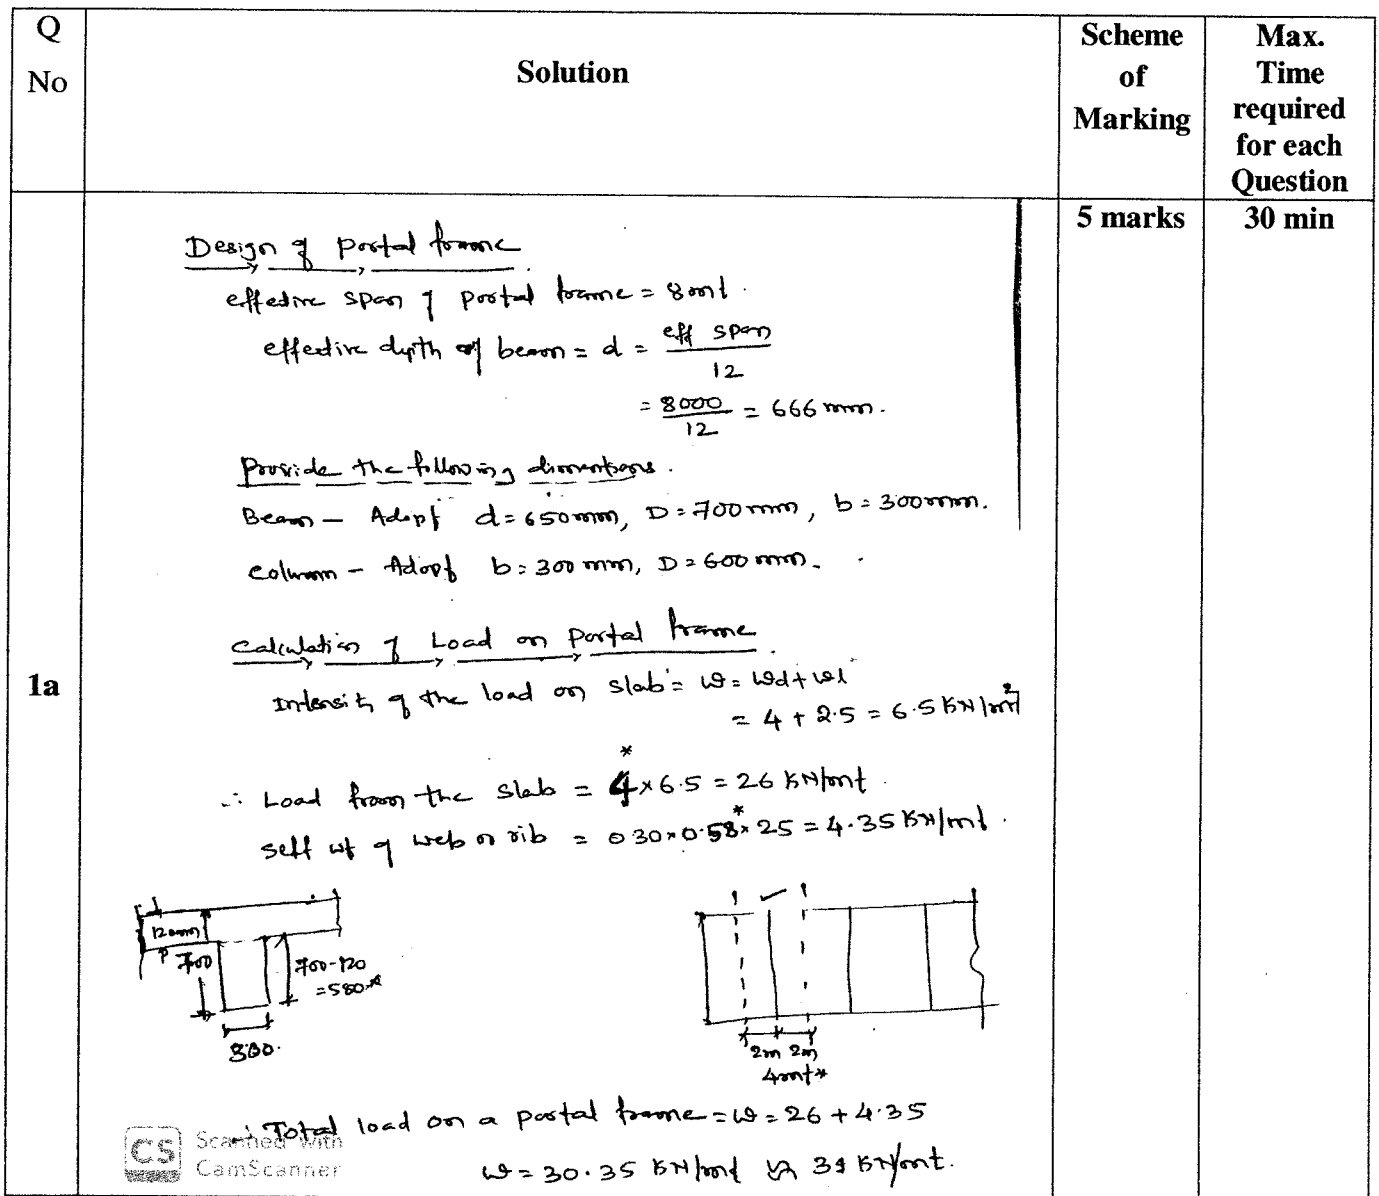 Q
No
Solution
Scheme
of
Marking
Max.
Time
required
for each
Question
1a
5 marks
30 min
Design of portal frame
effective span of portal frame = 8mt.
effective depth of beam = d = eff span
12
= 8000 = 666 mm.
12
Provide the following dimentions.
Beam - Adopt d=650mm, D=700mm, b=300mm.
Column - Adopt b=300 mm, D=600mm.
Calculation of Load on portal frame
Intensity of the load on slab = w = wd + wl
= 4 + 2.5 = 6.5 KN/mt²
*
∴ Load from the slab = 4×6.5 = 26 KN/mt.
*
self wt of web or rib = 0.30×0.58×25 = 4.35 KN/mt.
120mm
700
700-120
=580*
300.
2m 2m
4mt*
∴ Total load on a portal frame = w = 26 + 4.35
w = 30.35 KN/mt KN/mt.
CS Scanned with
CamScanner